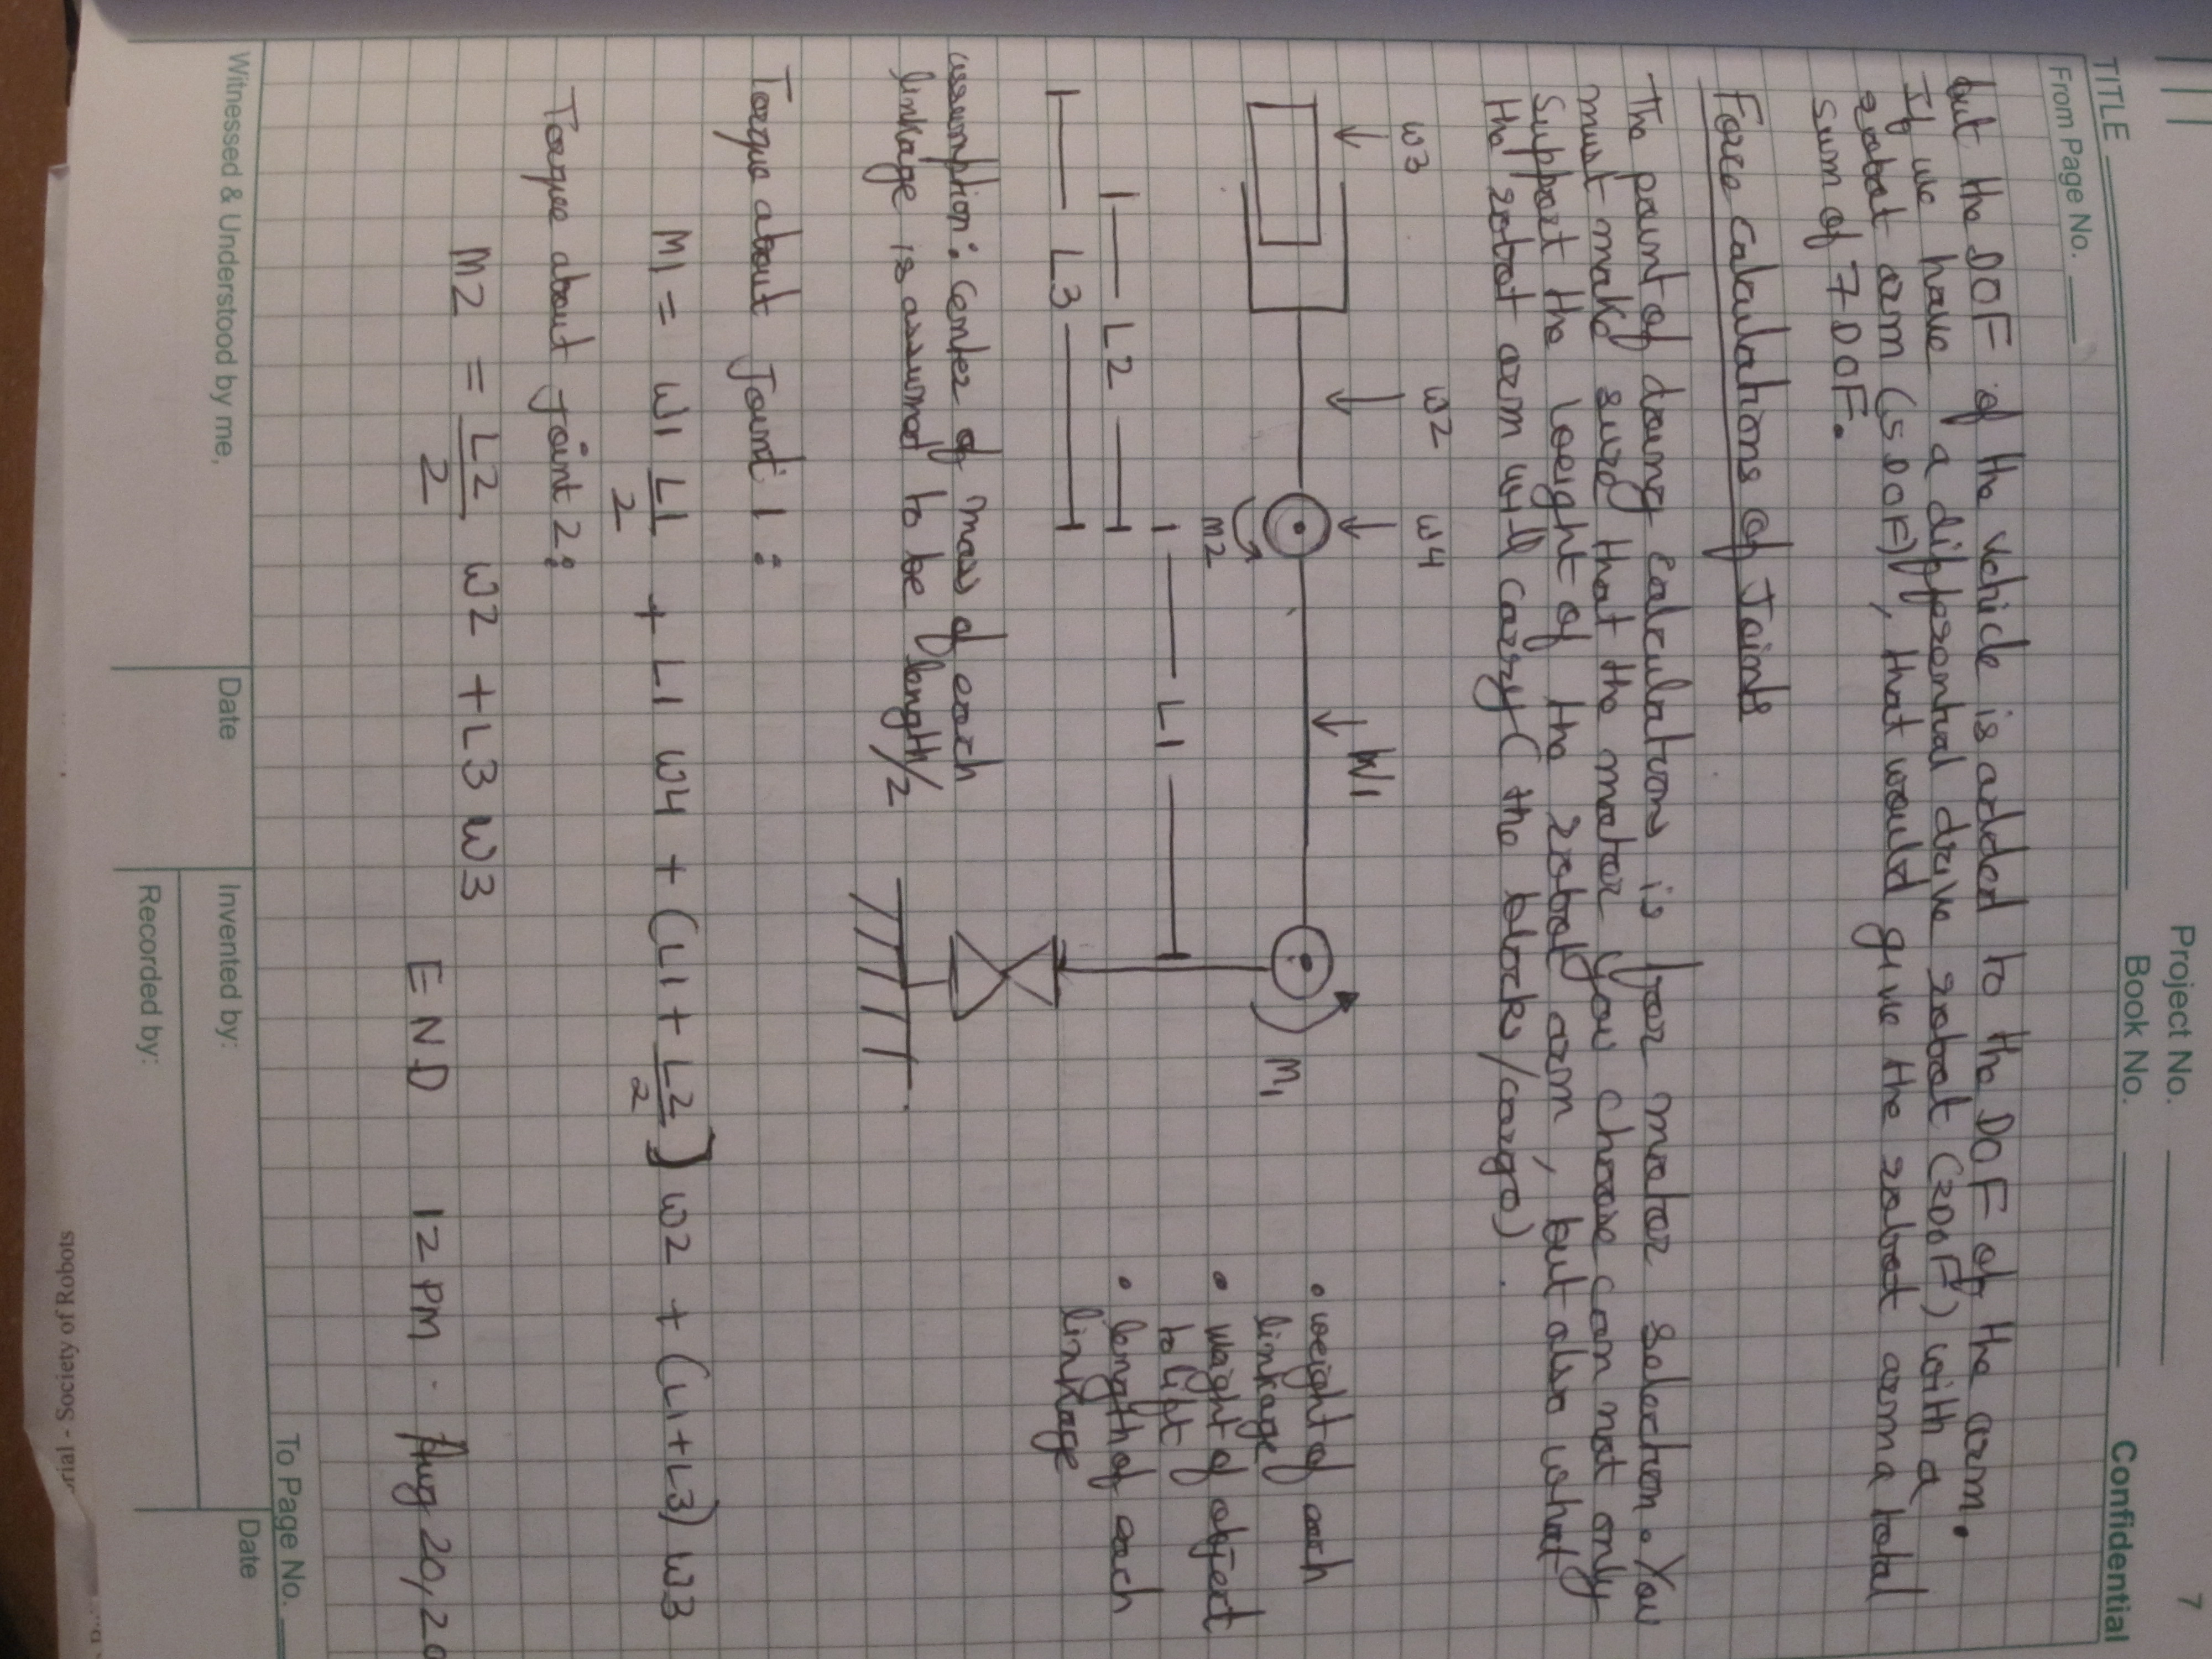 7
Project No.
Book No.
Confidential
TITLE
From Page No.
but the DOF of the vehicle is added to the DOF of the arm.
If we have a differential drive robot (2DOF) with a
robot arm (5 DOF), that would give the robot arm a total
sum of 7 DOF.
Force Calculations of Joints
The point of doing calculations is for motor selection. You
must make sure that the motor you choose can not only
support the weight of the robot arm, but also what
the robot arm will carry (the blocks/cargo).
w3
w2
w4
W1
M1
M2
L1
L2
L3
• weight of each
linkage
• weight of object
to lift
• length of each
linkage
assumption: Center of mass of each
linkage is assumed to be length/2
Torque about Joint 1:
M1 = W1 L1/2 + L1 W4 + (L1 + L2/2) W2 + (L1+L3) W3
Torque about joint 2:
M2 = L2/2 W2 + L3 W3
END 12 PM. Aug 20, 20
To Page No.
Witnessed & Understood by me,
Date
Invented by:
Date
Recorded by:
orial - Society of Robots